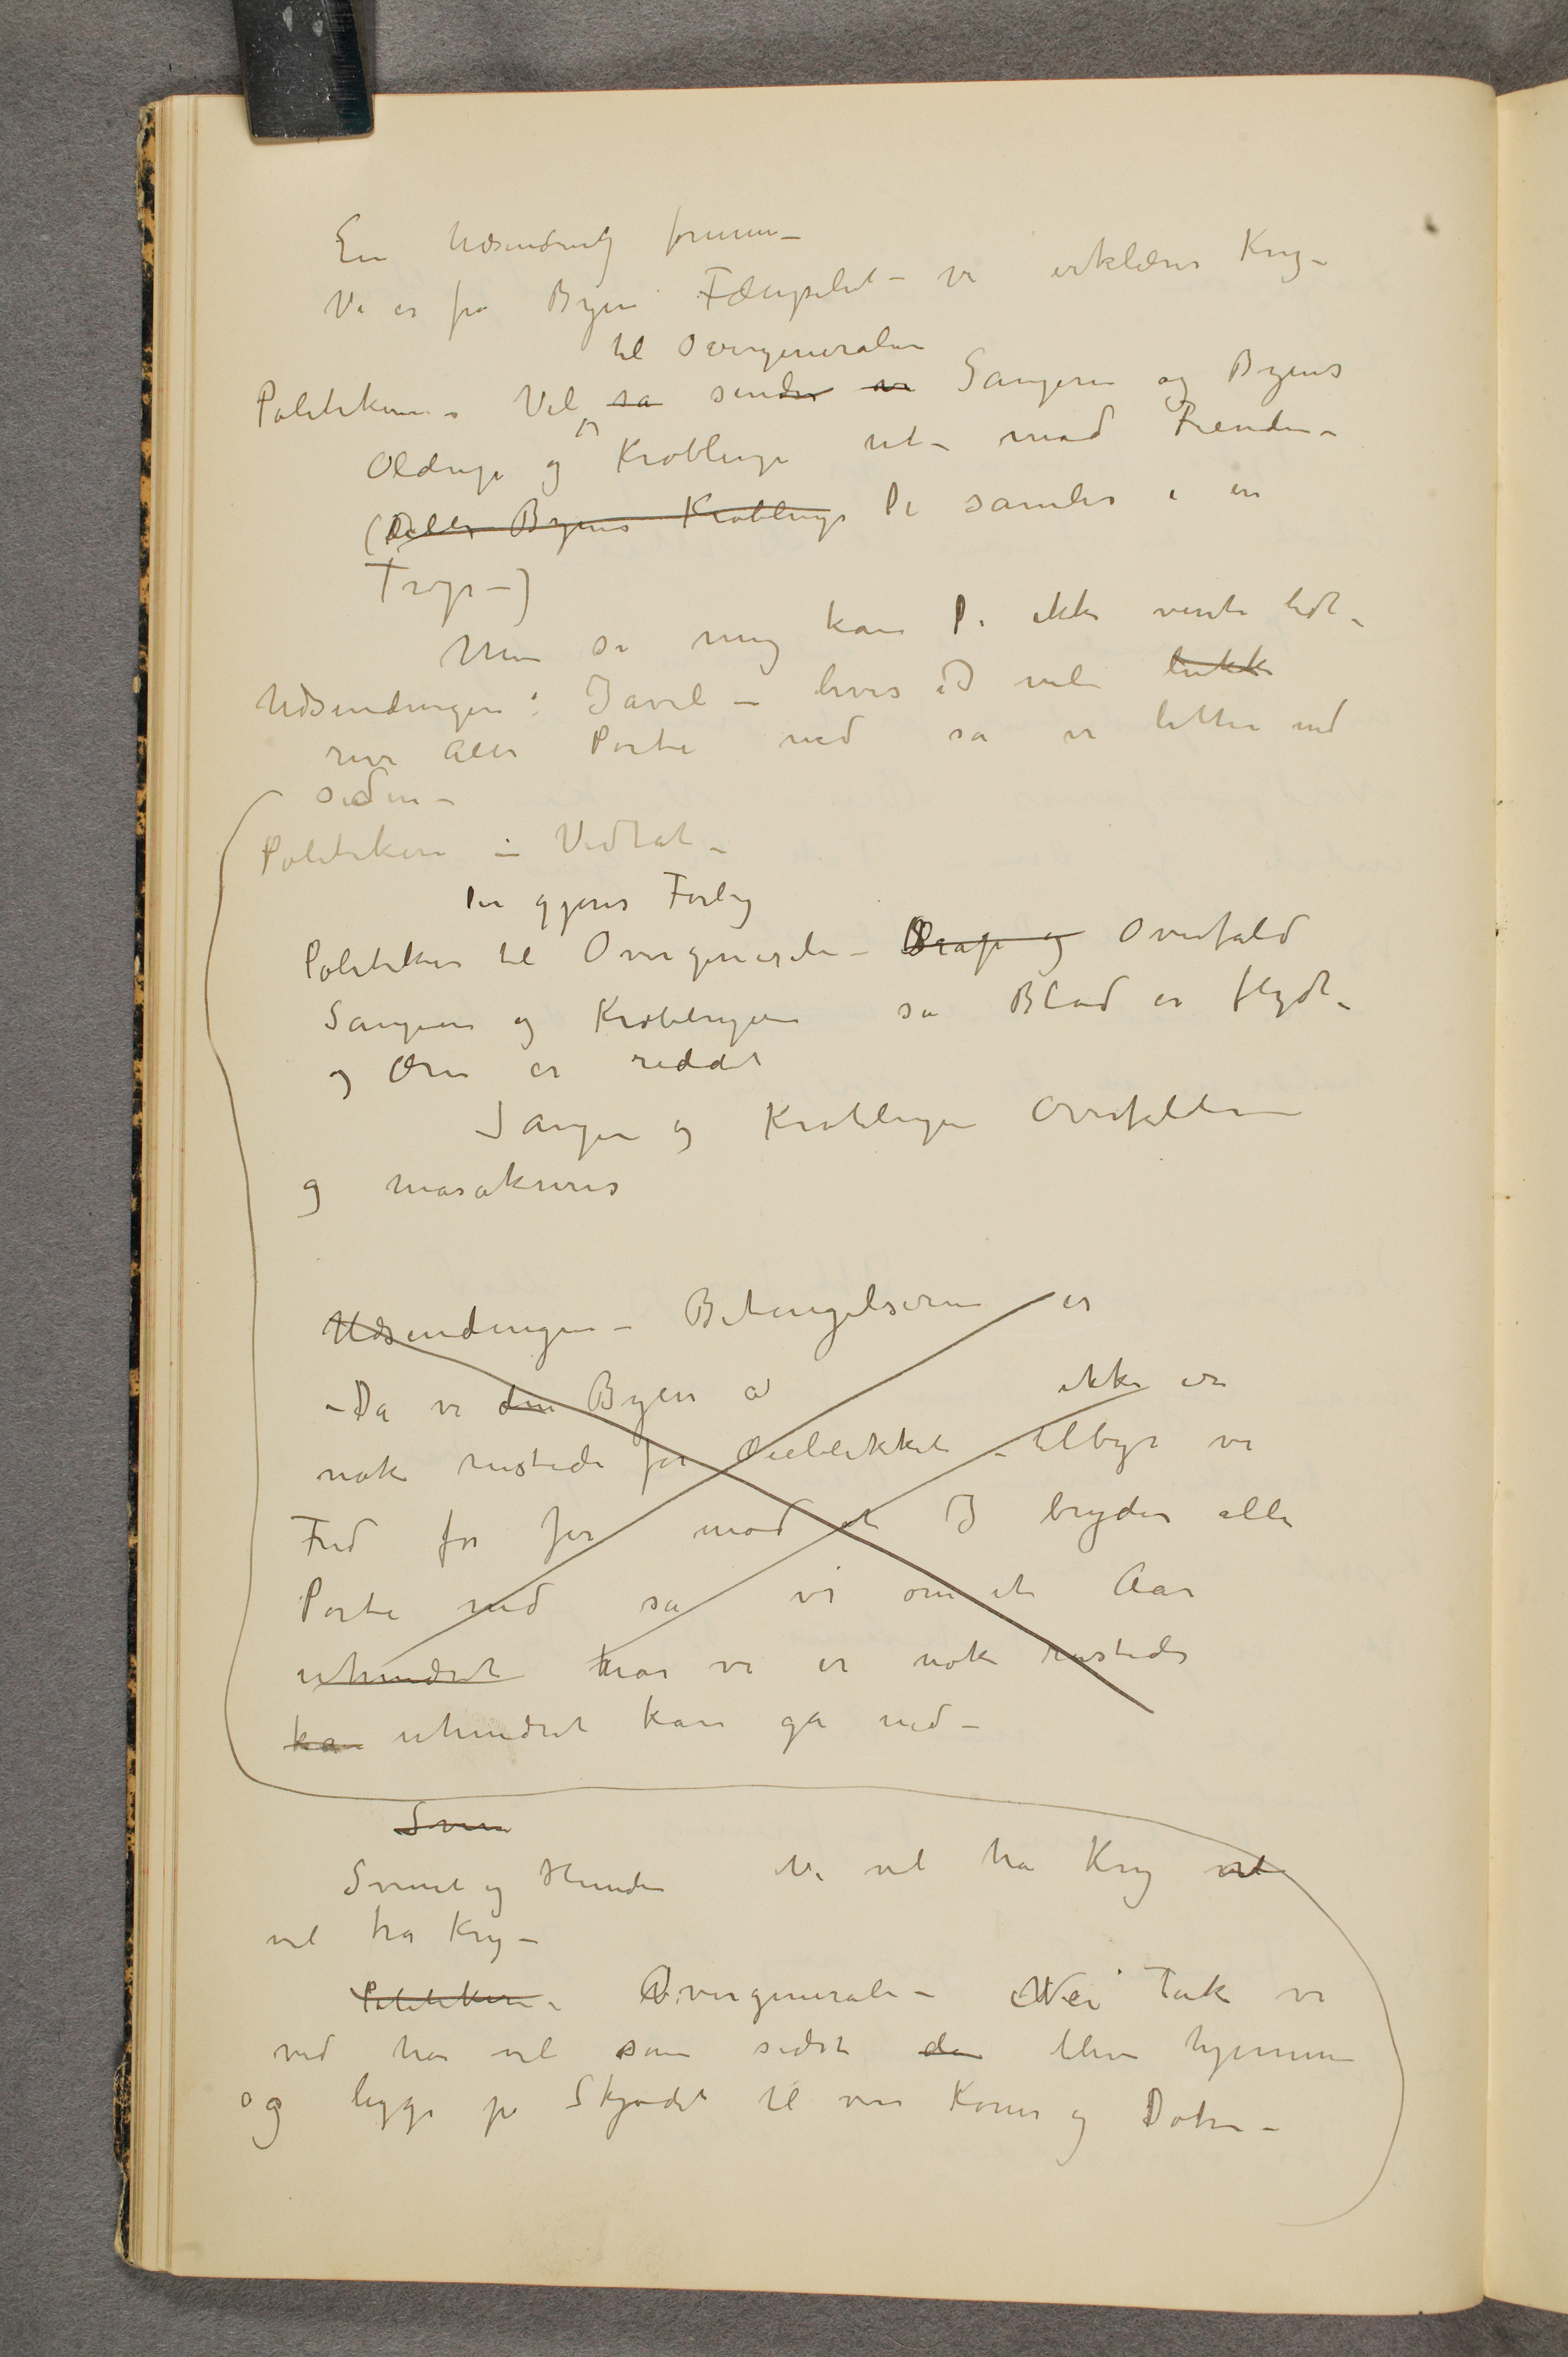 En Udsending
Vi er fra Byen Fængselet – vi erklærer Krig –
til Overgeneralen
Politikeren – Vel sa sender vi Sangeren og Byens
Oldinge og Krøblinge ut – mod Fienden –
(Alle Byens Krøblinge De samles i en
Trop –)
Men si mig kan De ikke vente lidt –
Udsendingen: Javel – hvis I vil lukke
rive alle Porte ned så vi letter ind
siden –
Politikeren – Vedtat –
Der gjøres Forlig
Politikeren til Overgeneralen – Drap og Overfald
Sangeren og Krøblingene så Blod er flydt –
og Æren er reddet
Sangeren og Krøblingene Overfalles
og masakreres
Udsendingen – Betingelserne er
– Da vi den Byen a ikke er
nok rustede for Øieblikket – tilbyr vi
Fred for Jer mod at I bryder alle
Porte ned så vi om et Aar
uhindret når vi er nok rustede
kan uhindret kan gå ind –
Svine
Svinet og Hunden Vi vil ha Krig vil
vil ha Krig –
Politikeren – Overgeneralen – Nei Tak vi
ved har vil som sidst da blive hjemme
og ligge på Skjødet til vore Koner og Døtre –